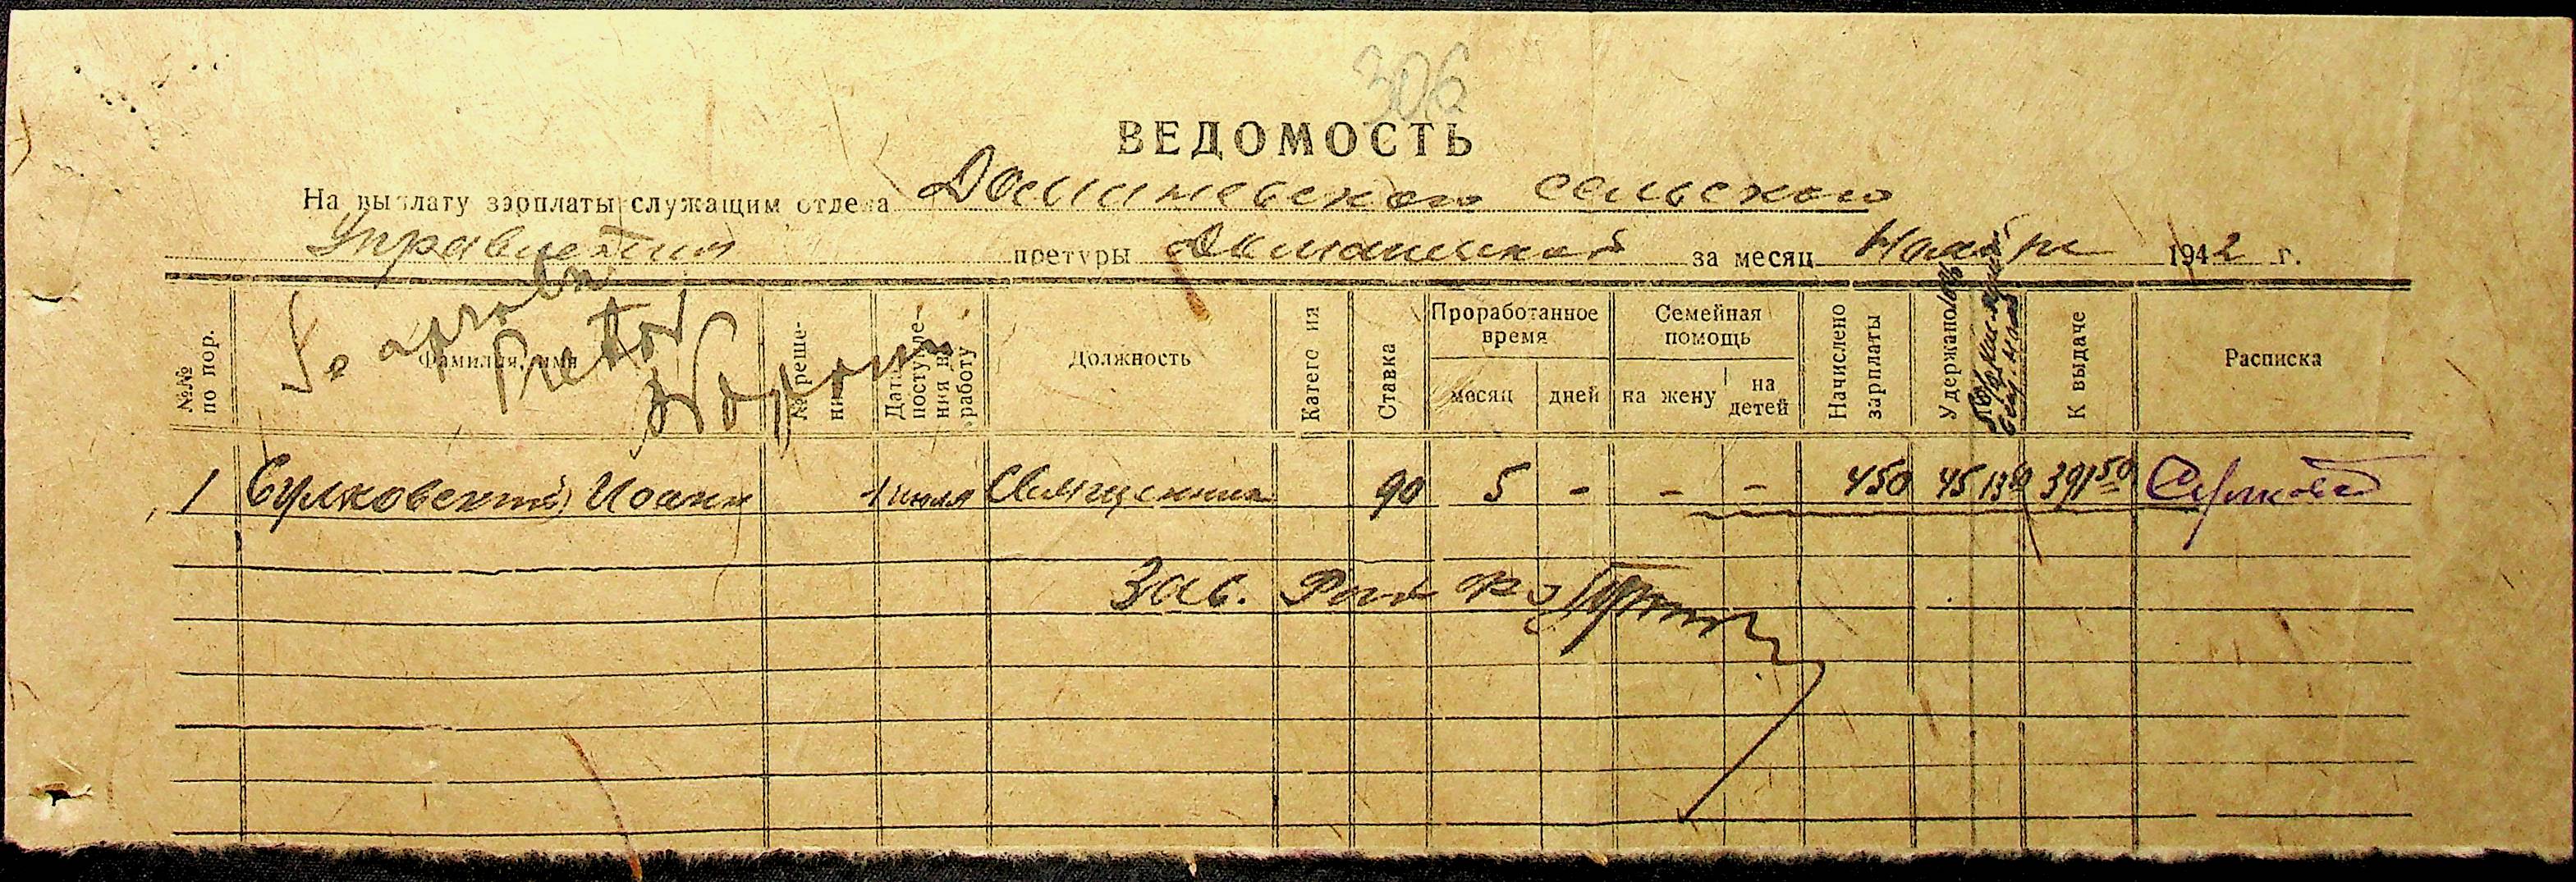 306
ВЕДОМОСТЬ
На выплату зарплаты служащим отдела Доманевского сельского
Управления претуры Доманевской за месяц Ноябрь 1942 г.
Se aprobă
Pretor
№№ по пор.
Фамилия, имя
№ реше-
ния
Дата
поступле-
ния на
работу
Должность
Катего ия
Ставка
Проработанное
время
месяц
дней
Семейная
помощь
на жену
на
детей
Начислено
зарплаты
Удержано 10%
К выдаче
Расписка
1 Сулковский Иоанн 1 июля Священник 90 5 - - - 450 45 13 50 391 50
Зав.